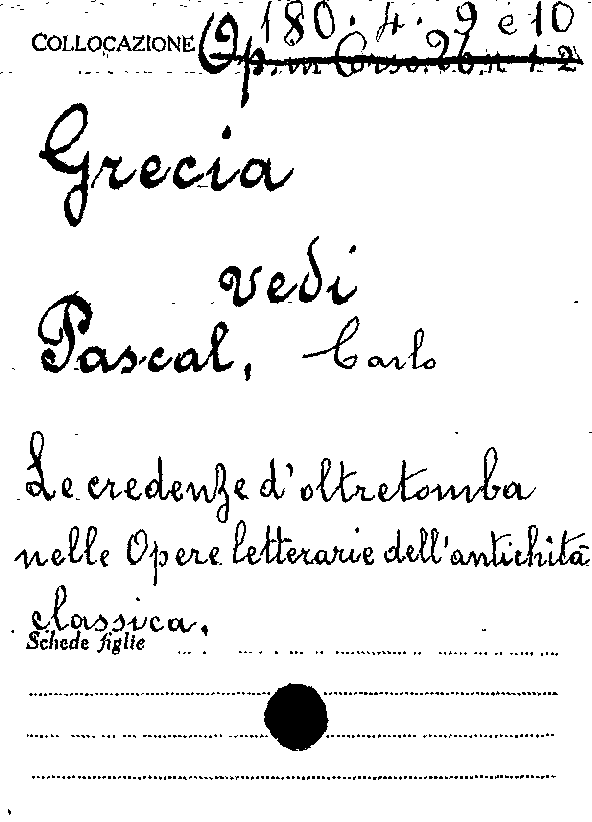 COLLOCAZIONE Q. 180. 4. 9 e 10
Op. in Corso. 26. n 1-2
Grecia
vedi
Pascal, Carlo
Le credenze d'oltretomba
nelle Opere letterarie dell'antichità
classica.
Schede figlie